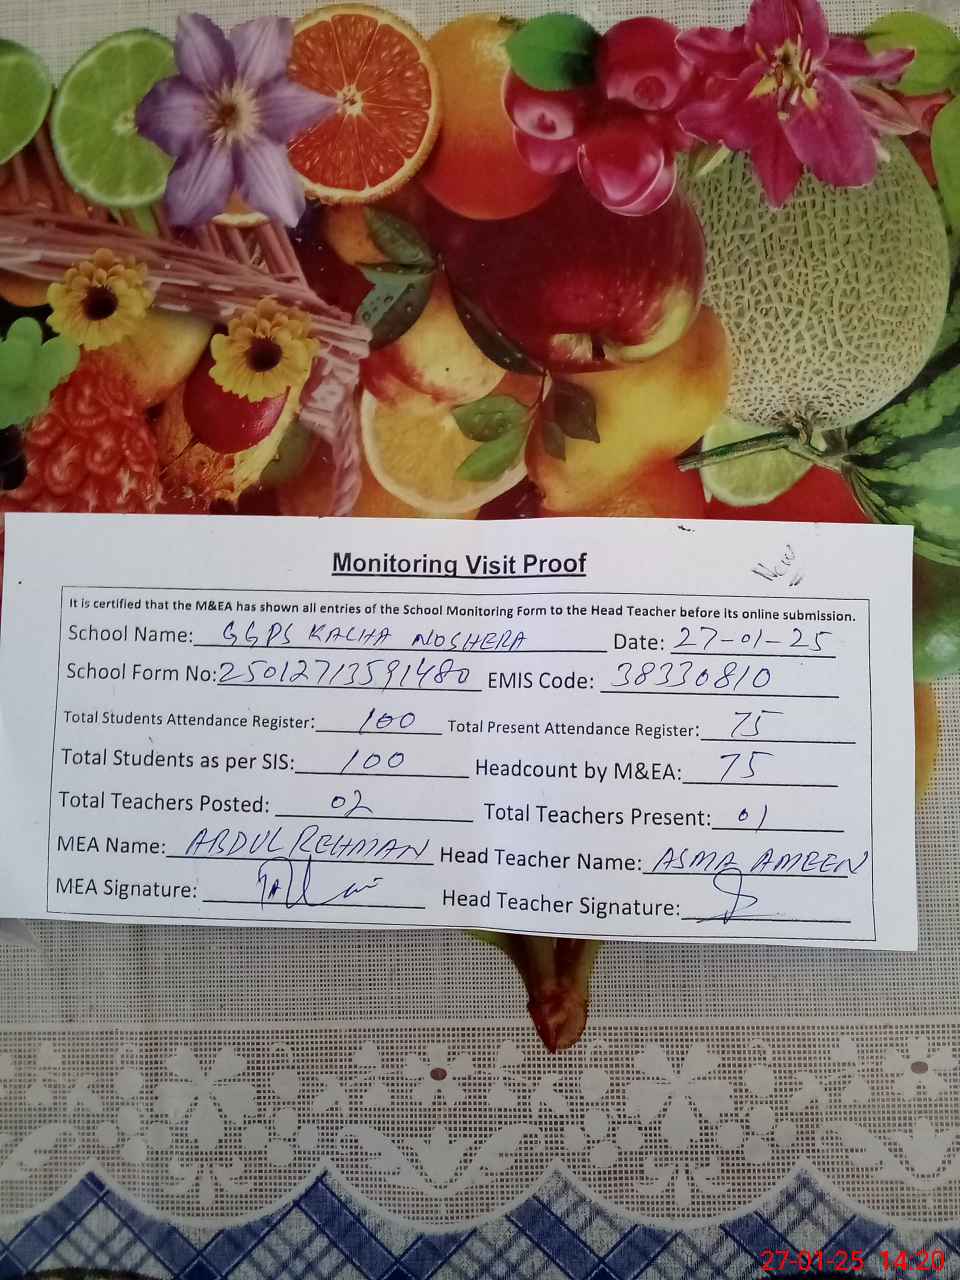 Monitoring Visit Proof
New
It is certified that the M&EA has shown all entries of the School Monitoring Form to the Head Teacher before its online submission.
School Name: GGPS KACHA NOSHERA Date: 27-01-25
School Form No: 25012713591480 EMIS Code: 38330810
Total Students Attendance Register: 100 Total Present Attendance Register: 75
Total Students as per SIS: 100 Headcount by M&EA: 75
Total Teachers Posted: 02 Total Teachers Present: 01
MEA Name: ABDUL REHMAN Head Teacher Name: ASMA AMEEN
MEA Signature: Head Teacher Signature:
27-01-25 14:20